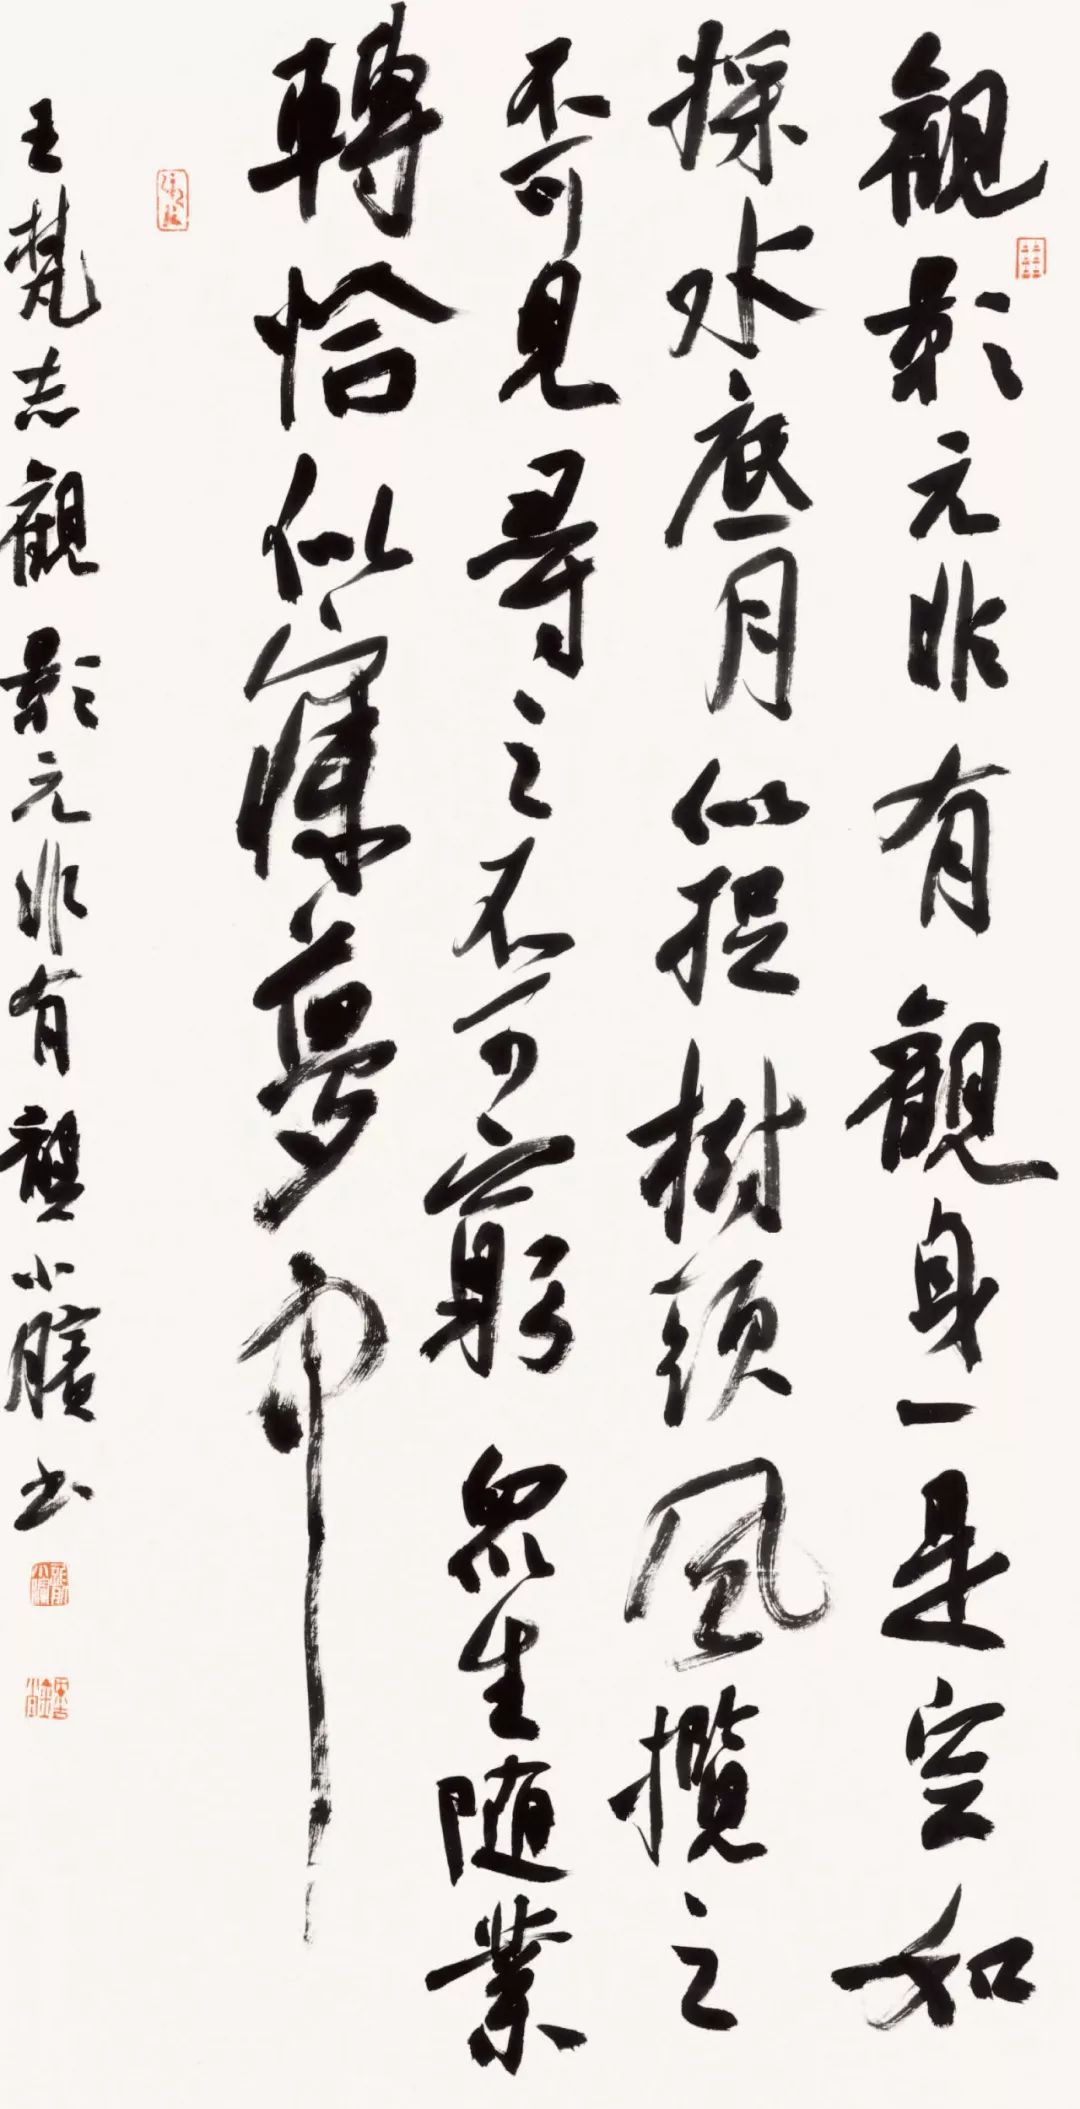 觀影元非有觀身一是空如
採水底月似捉樹頭風攬之
不可見尋之不可窮眾生随業
轉恰似寐夢中
王梵志觀影元非有龔小臏书